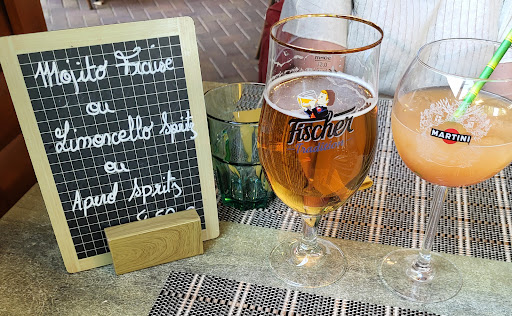 Mojito Fraise
ou
Limoncello Spritz
ou
Aperol Spritz
Fischer
Tradition
MARTINI